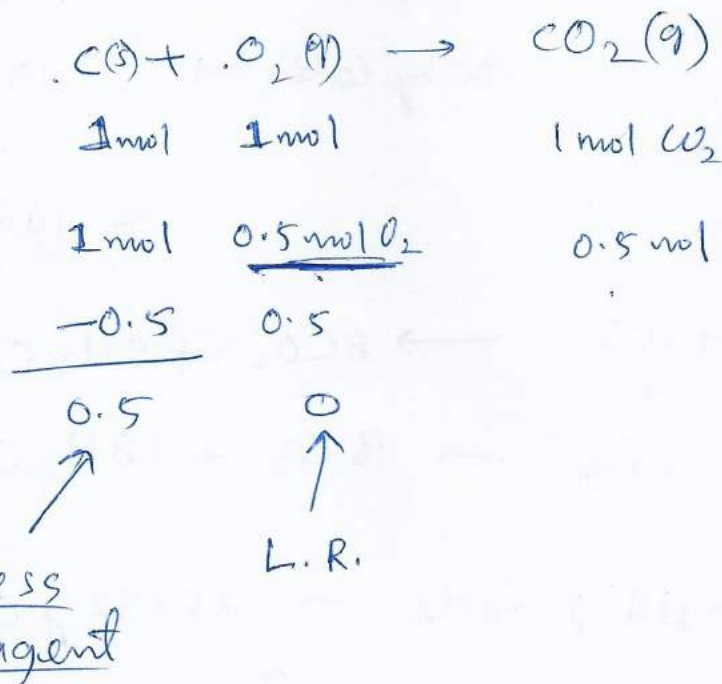 .C(s) + .O2(g) → CO2(g)
1mol 1mol 1 mol CO2
1mol 0.5 mol O2 0.5 mol
-0.5 0.5
0.5 0
L.R.
ess
agent